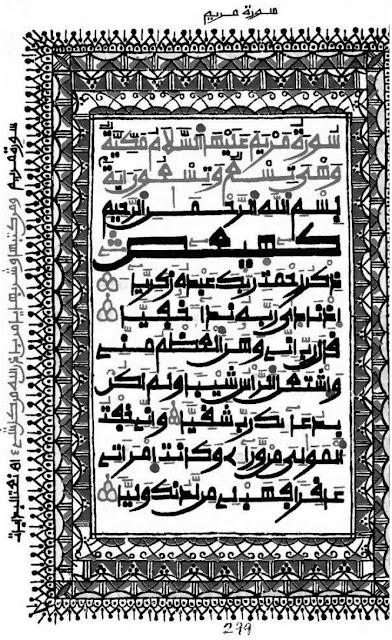 سورة مريم
سورة مريم عليها السلام مكية
وهي تسع و تسعون اية
بسم الله الرحمن الرحيم
كهيعص
ذكر رحمت ربك عبده زكريا
إذ نادى ربه نداء خفيا
قال رب إني وهن العظم مني
واشتعل الرأس شيبا ولم أكن
بدعائك رب شقيا وإني خفت
الموالي من وراءي وكانت امرأتي
عاقرا فهب لي من لدنك وليا
سورة مريم ومن كتبها وشربها
279